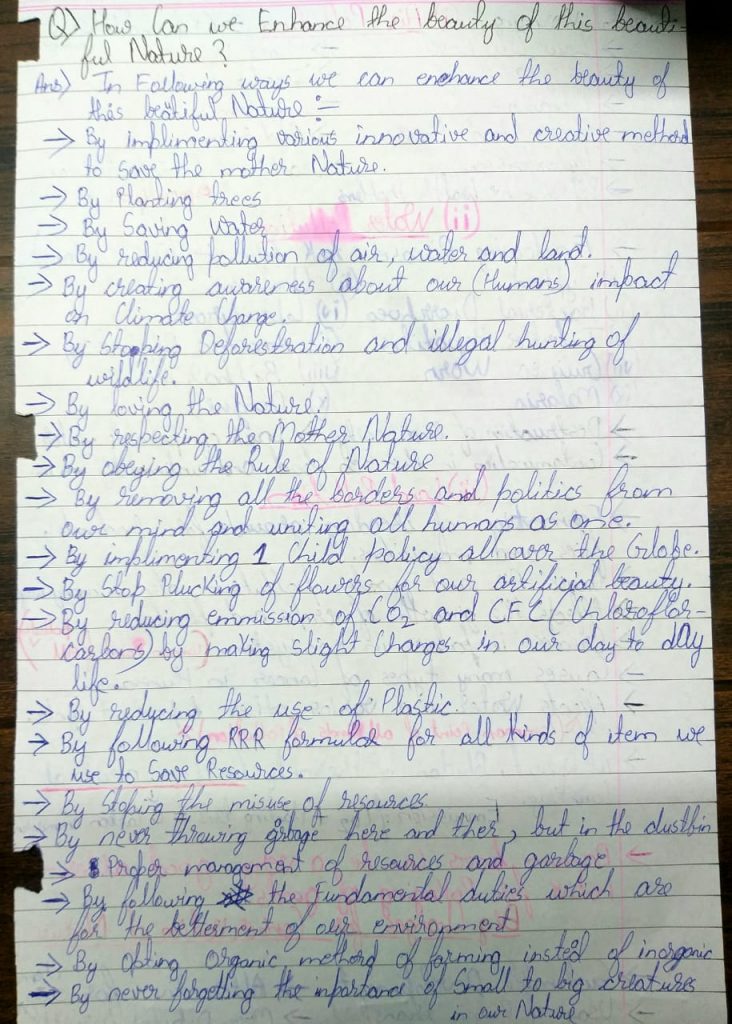 Q) How Can we Enhance the beauty of this beauti-
ful Nature?
Ans) In Following ways we can enchance the beauty of
this beatiful Nature :=
→ By implimenting various innovative and creative method
to save the mother Nature.
→ By Planting trees
→ By Saving Water
→ By reducing pollution of air, water and land.
→ By creating awareness about our (Humans) impact
on Climate Change.
→ By Stopping Deforestration and illegal hunting of
wildlife.
→ By loving the Nature.
→ By respecting the Mother Nature.
→ By obeying the Rule of Nature
→ By removing all the borders and politics from
our mind and uniting all humans as one.
→ By implimenting 1 Child policy all over the Globe.
→ By Stop Plucking of flowers for our artificial beauty.
→ By reducing emmission of CO2 and CFC (Chloroflor-
carbons) by making slight Changes in our day to day
life.
→ By reducing the use of Plastic.
→ By following RRR formulae for all kinds of item we
use to Save Resources.
→ By Stoping the misuse of resources
→ By never throwing grbage here and ther, but in the dustbin
→ Proper management of resources and garbage
→ By following the Fundamental duties which are
for the betterment of our environment
→ By Opting Organic method of farming insted of inorganic
→ By never forgetting the inportance of Small to big creatures
in our Nature